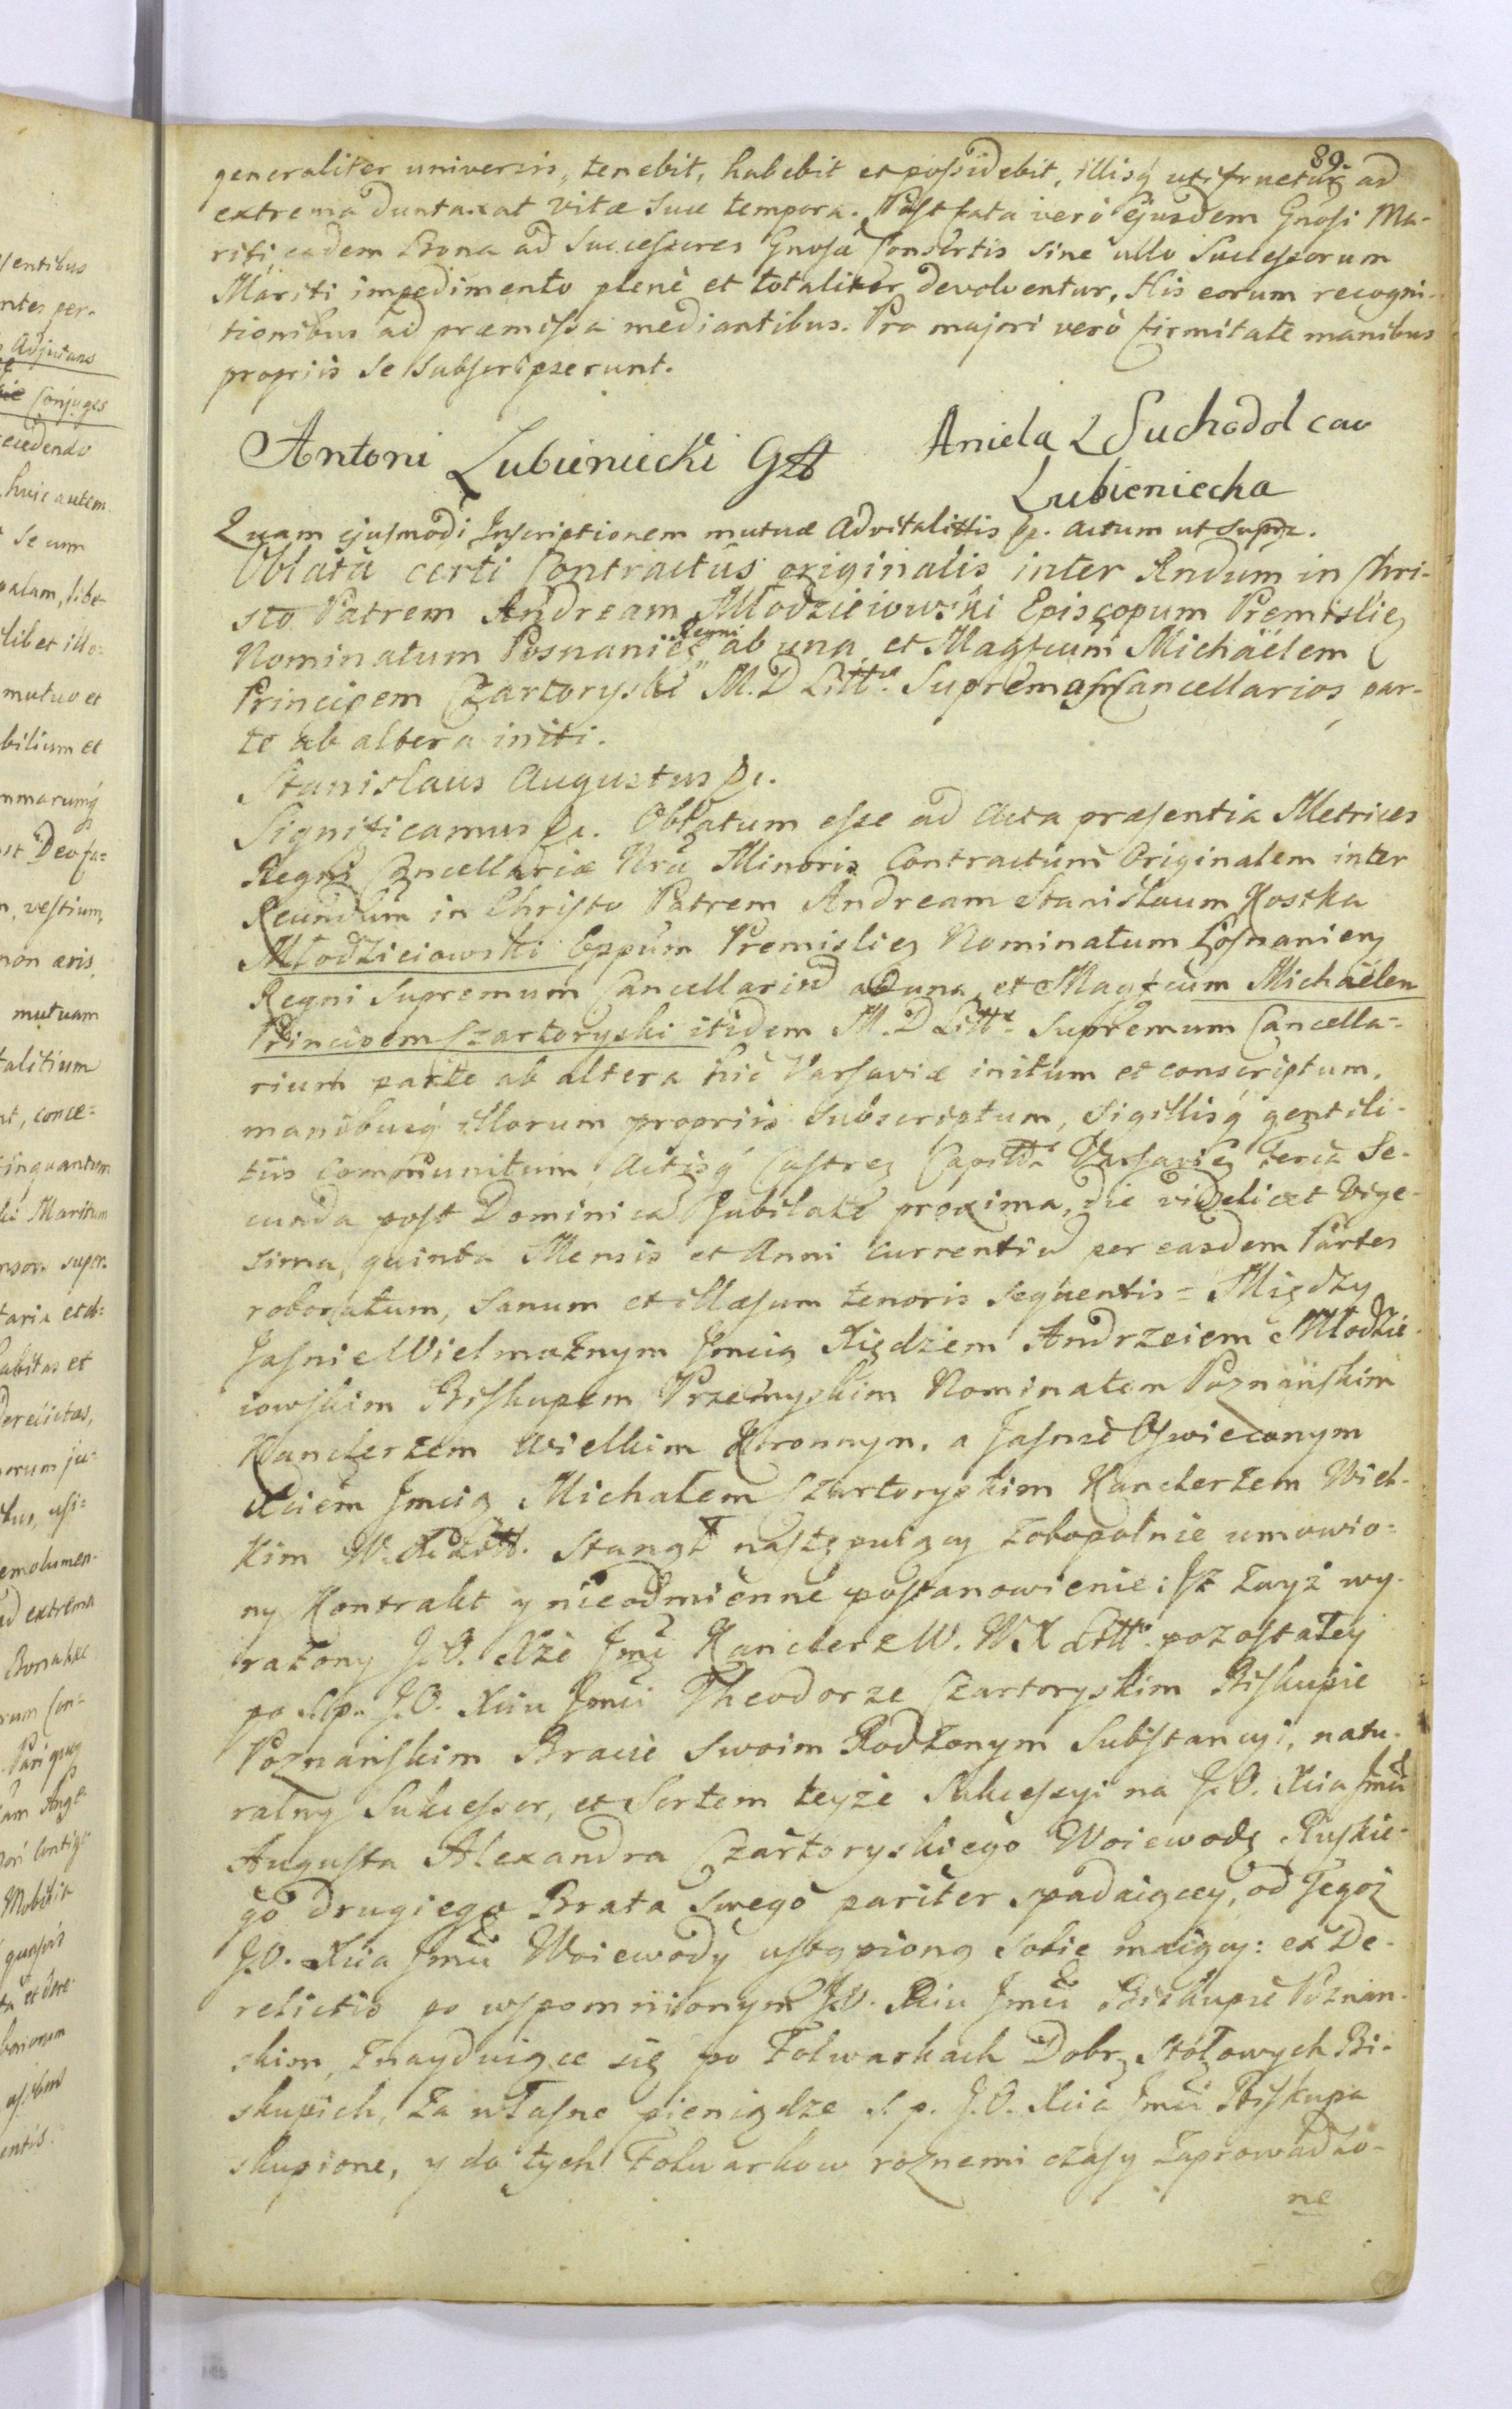 89.
generaliter universis, tenebit, habebit et possidebit, illisq utifruetur ad
extrema duntaxat vitæ suæ tempora. Post fata verò Ejusdem Gnosi Ma-
riti eadem Bona ad Successores Gnosæ Consortis sine ullo Successorum
Mariti impedimento plenè et totaliter devolventur, His eorum recogni-
tionibus ad præmissa mediantibus. Pro majori verò firmitate manibus
propriis se subscripserunt.
Antoni Lubieniecki
Aniela z Suchodolcow
Lubieniecka
Quam ejusmodi Inscriptionem mutuæ advitalittis &c. actum ut supra.
Oblata certi Contractûs originalis inter Rndum in Chri-
sto Patrem Andream Młodzieiowski Episcopum Premislię
Nominatum Posnanię Regni ab una et Magfcum Michäelem
Principem Czartoryski M. D Litt. Supremos Cancellarios par-
te ab altera initi.
Stanislaus Augustus &c.
Significamus &c. Oblatum esse ad Acta præsentia Metrices
Regni Cancellariæ Nræ Minoris Contractum Originalem inter
Reundum in Christo Patrem Andream Stanislaum Kostka
Młodzieiowski Eppum Premislię Nominatum Posnanien
Regni Supremum Cancellariũ ab una et Magfcum Michäelem
Principem Czartoryski itidem M. D Litt. Supremum Cancella-
rium parte ab altera hic Varsaviæ initum et conscriptum,
manibusq illorum propriis subscriptum, sigillisq gentili-
tiis communitum, Actisq Castrę Capitt. Varsavię Feria Se-
cunda post Dominicã Jubilate proxima, die videlicet Vige-
sima quinta Mensis et Anni currentiũ per easdem Partes
roboratum, sanum et illæsum tenoris sequentis = Między
Jasnie Wielmożnym Jmcią Xiędzem Andrzeiem Młodzie-
iowskim Biskupem Przemyskim Nominatem Poznańskim
Kanclerzem Wielkim Koronnym, a Jasnie Oswieconym
Xciem Jmcią Michałem Czartoryskim Kanclerzem Wiel-
kim W. X. Litt. stanął następuiący zobopolnie umowio-
ny Kontrakt y nieodmienne postanowienie: Iż zwyż wy-
rażony J. O. Xże Jmć Kanclerz W. W X Litt. pozostałey
po S. p. J. O. Xciu Jmci Theodorze Czartoryskim Biskupie
Poznańskim Bracie swoim Rodzonym Substancyi, natu-
ralny Sukcessor, et Sortem teyże Sukcessyi na J. O. Xcia Jmci
Augusta Alexandra Czartoryskiego Woiewodę Ruskie-
go drugiego Brata swego pariter spadaiącey, od Tegoż
J. O. Xcia Jmci Woiewody ustąpioną sobie maiący: ex De-
relictis po wspomnionym J. O. Xciu Jmci Biskupie Poznan-
skim, znayduiące się po Folwarkach Dobr Stołowych Bi-
skupich, za własne pieniądze S. p. J. O. Xcia Jmci Biskupa
skupione, y do tych Folwarkow roznemi czasy zaprowadzo-
ne